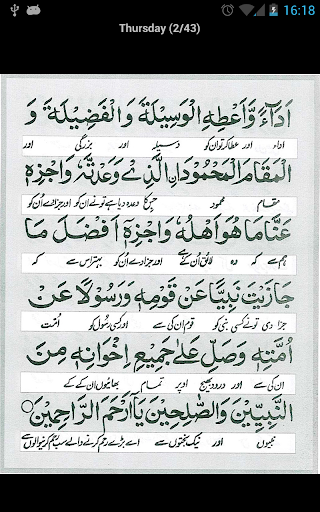 16:18
Thursday (2/43)
اَدَآءً وَّاَعْطِهِ الْوَسِيْلَةَ وَالْفَضِيْلَةَ وَ
اداء اور عطا کر تو ان کو وسیلہ اور بزرگی اور
الْمَقَامَ الْمَحْمُوْدَانِ الَّذِيْ وَعَدْتَّهٗ وَاجْزِهٖ
مقام محمود جس کا وعدہ دیا ہے تو نے ان کو اور جزا دے ان کو
عَنَّا مَا هُوَ اَهْلُهٗ وَاجْزِهٖ اَفْضَلَ مَا
ہم سے کہ وہ لائق ان کے سے اور جزا دے ان کو بہتر اس سے کہ
جَازَيْتَ نَبِيًّا عَنْ قَوْمِهٖ وَرَسُوْلًا عَنْ
جزا دی تو نے کسی نبی کو قوم ان کی سے اور کسی رسول کو امت
اُمَّتِهٖ وَصَلِّ عَلٰى جَمِيْعِ اِخْوَانِهٖ مِنَ
ان کی سے اور درود بھیج اوپر تمام بھائیوں ان کے کے
النَّبِيّٖنَ وَالصَّالِحِيْنَ يَآ اَرْحَمَ الرَّاحِمِيْنَ
نبیوں اور نیک بختوں سے اے بڑے رحم کرنے والے سب رحم کرنیوالوں سے